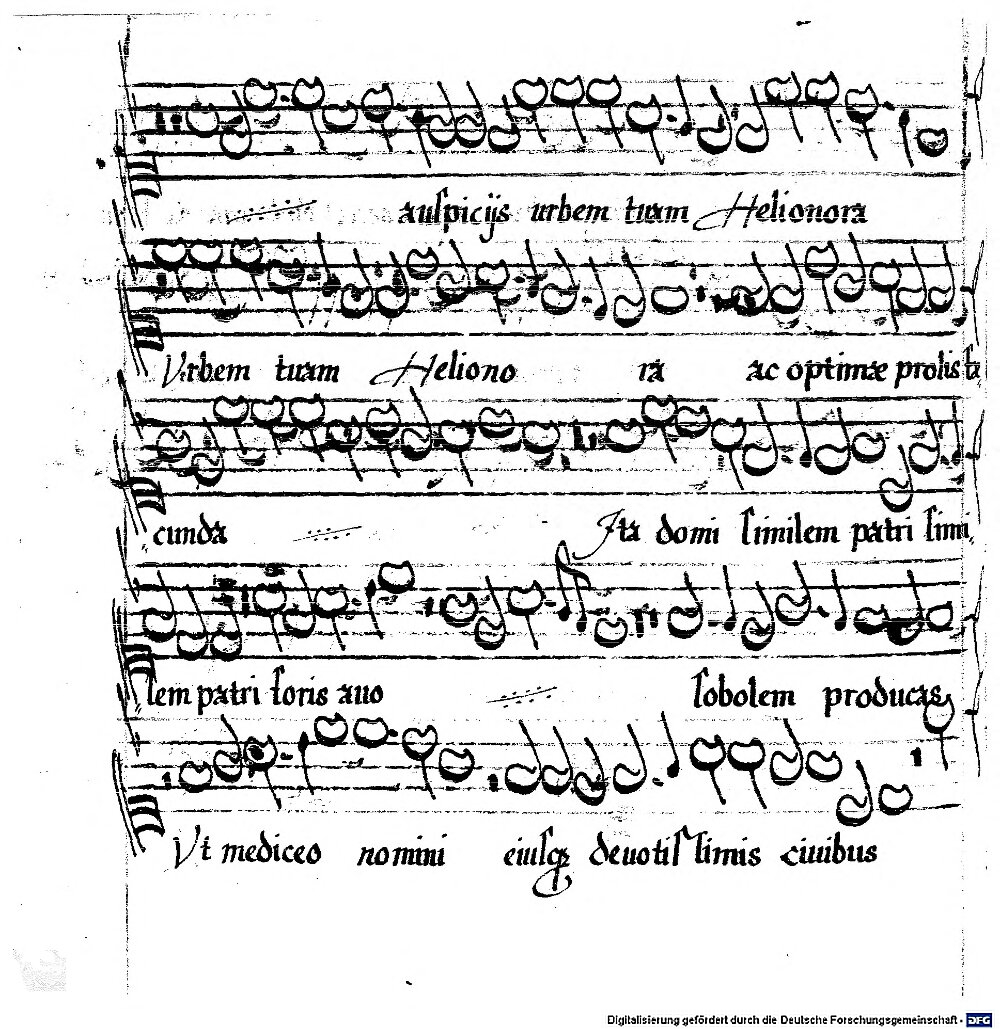 auſpicijs urbem tuam Helionora
Vrbem tuam Heliono ra ac optimæ prolis fæ
cunda Ita domi ſimilem patri ſimi,
lem patri foris auo ſobolem producas
Vt mediceo nomini eiuſqꝫ deuotiſſimis ciuibus
Digitalisierung gefördert durch die Deutsche Forschungsgemeinschaft - DFG